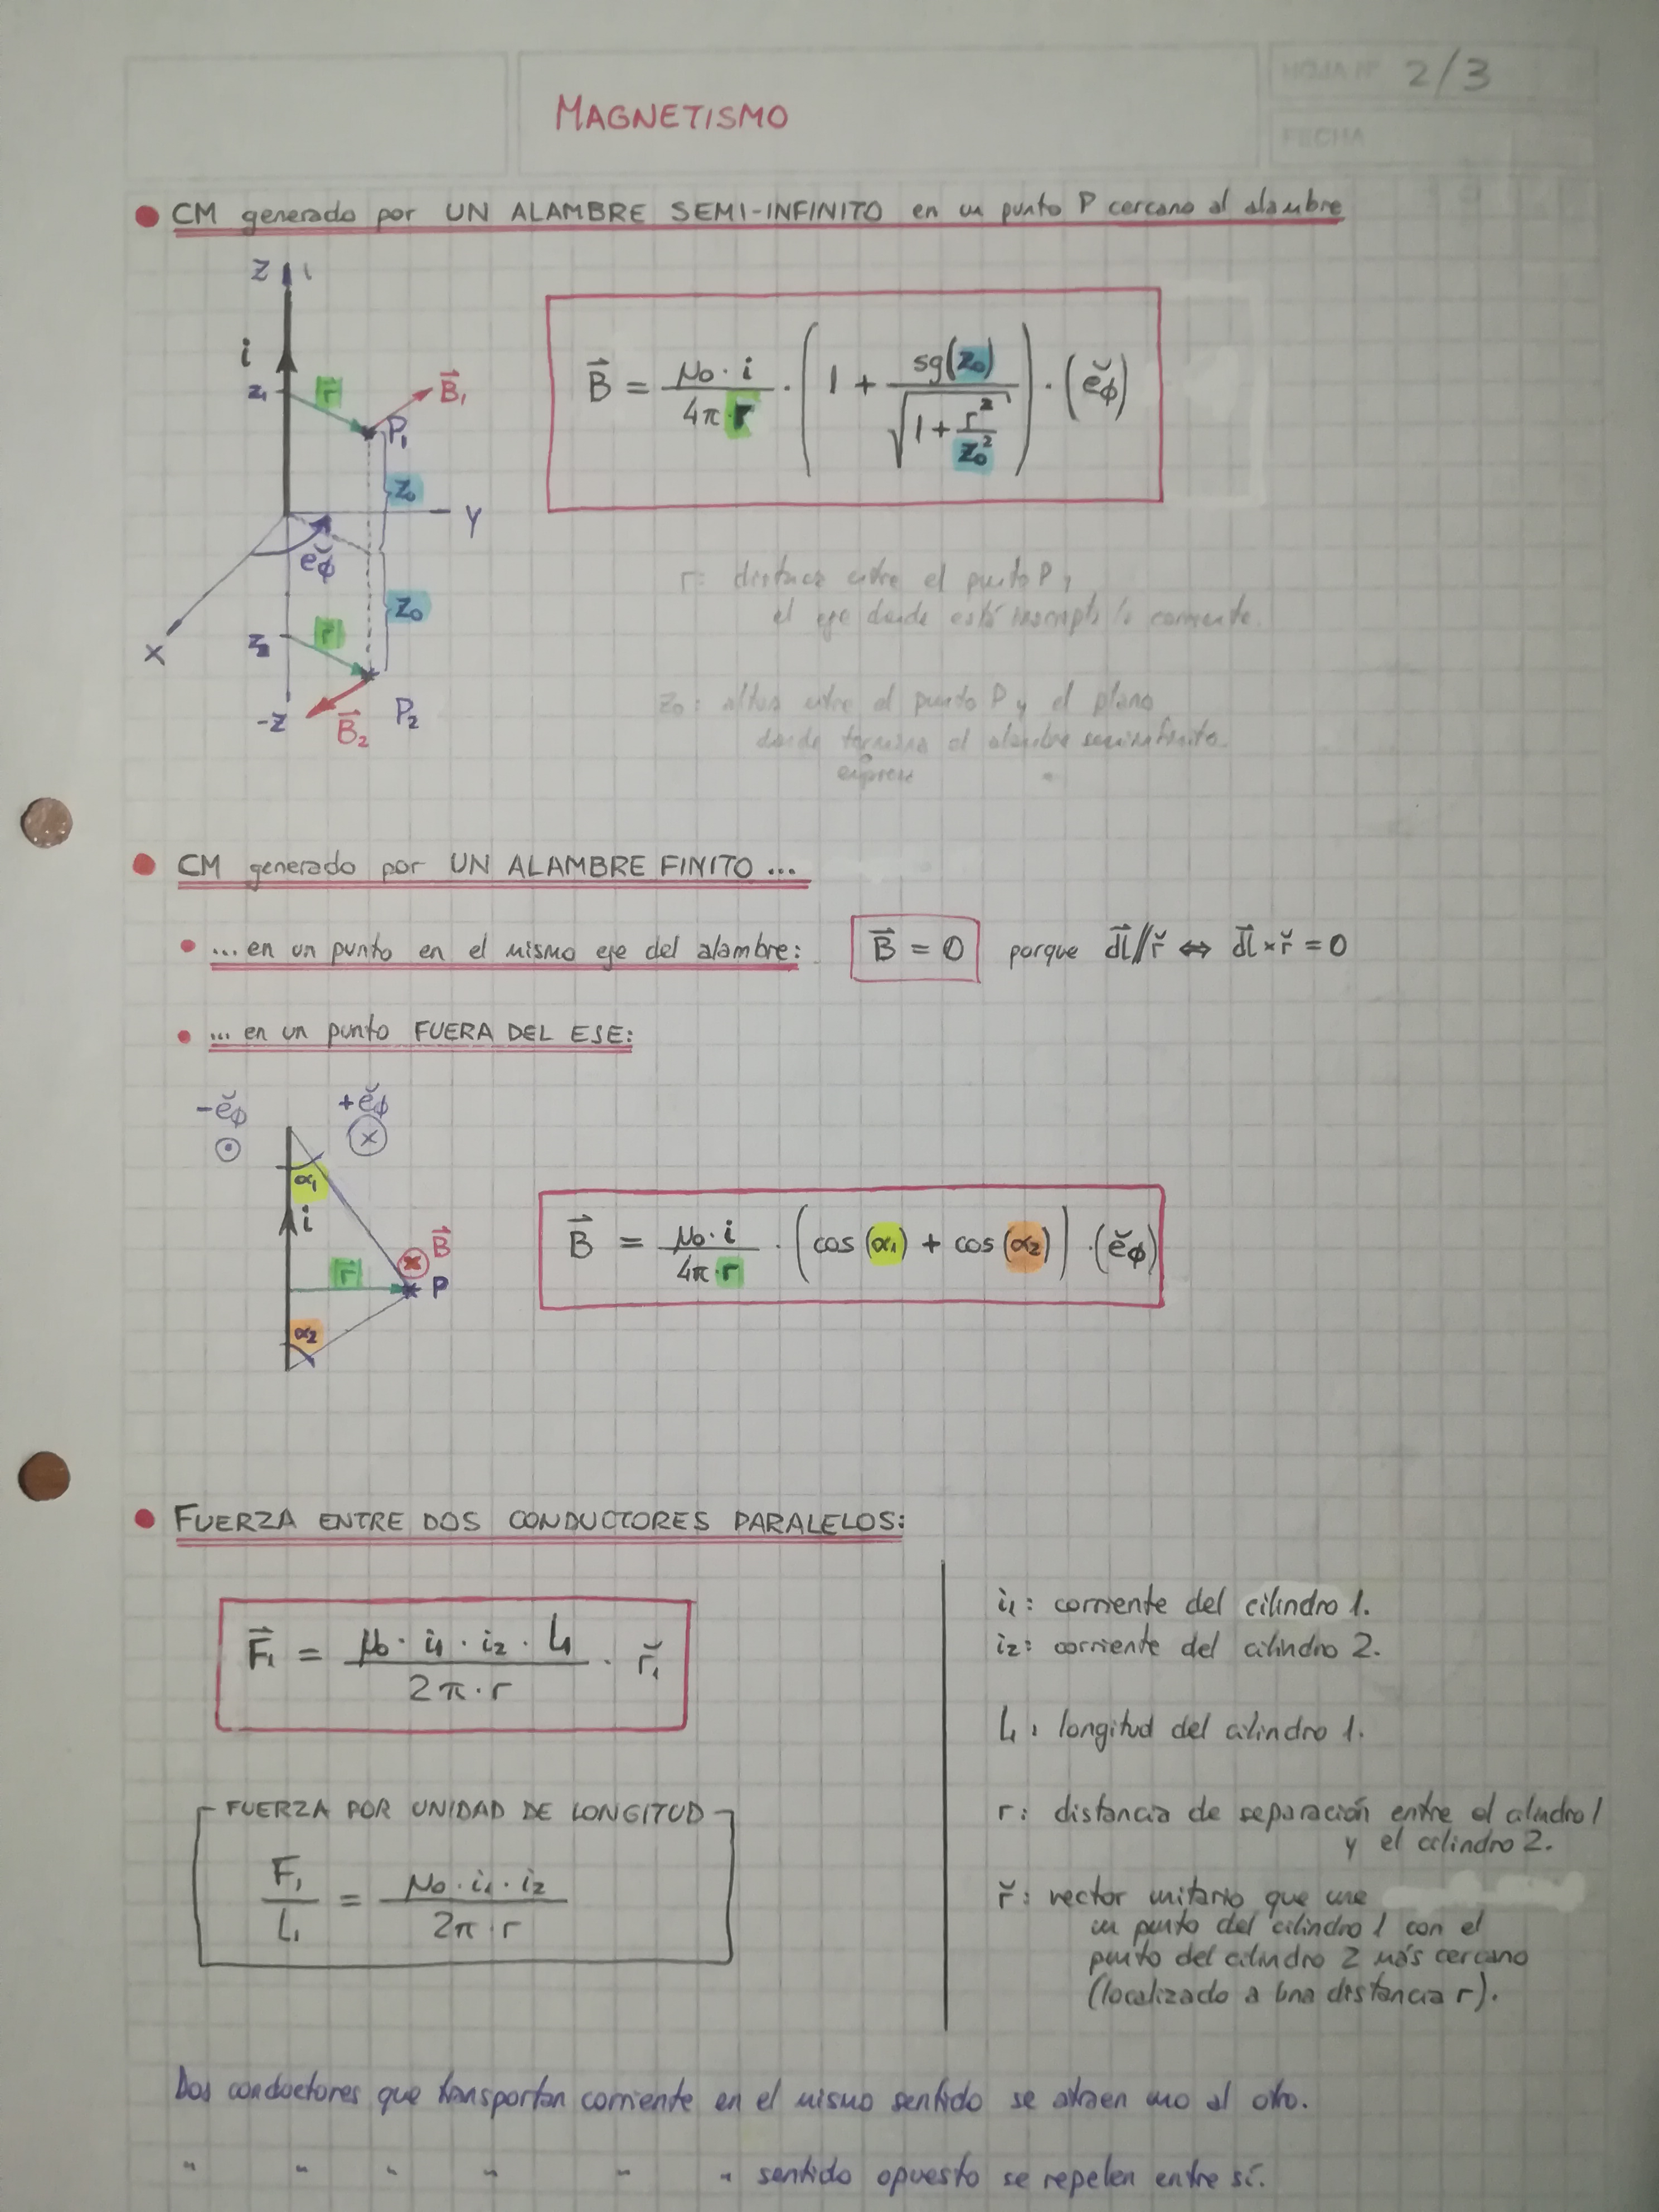 HOJA Nº 2/3
MAGNETISMO
FECHA
CM generado por UN ALAMBRE SEMI-INFINITO en un punto P cercano al alambre
Z
i
z₁ r⃗ B⃗₁
P₁
z₀
Y
ĕϕ
z₀
X
z₂ r⃗
-z B⃗₂ P₂
B⃗ = μ₀ · i / 4π · r · (1 + sg(z₀) / √(1 + r²/z₀²)) · (ĕϕ)
r: distancia entre el punto P y
el eje donde está inscripto la corriente.
z₀: altura entre el punto P y el plano
donde termina el alambre semiinfinito.
o empieza "
CM generado por UN ALAMBRE FINITO ...
... en un punto en el mismo eje del alambre: B⃗ = 0 porque d⃗l // r̆ ⇔ d⃗l × r̆ = 0
... en un punto FUERA DEL ESE:
-ĕϕ +ĕϕ
α₁
i
B⃗
r⃗ P
α₂
B⃗ = μ₀ · i / 4π · r · (cos(α₁) + cos(α₂)) · (ĕϕ)
FUERZA ENTRE DOS CONDUCTORES PARALELOS:
F⃗₁ = μ₀ · i₁ · i₂ · L₁ / 2π · r · r̆₁
FUERZA POR UNIDAD DE LONGITUD
F₁ / L₁ = μ₀ · i₁ · i₂ / 2π · r
i₁: corriente del cilindro 1.
i₂: corriente del cilindro 2.
L₁: longitud del cilindro 1.
r: distancia de separación entre el cilindro 1
y el cilindro 2.
r̆: vector unitario que une
un punto del cilindro 1 con el
punto del cilindro 2 más cercano
(localizado a una distancia r).
Dos conductores que transportan corriente en el mismo sentido se atraen uno al otro.
" " " " " " sentido opuesto se repelen entre sí.